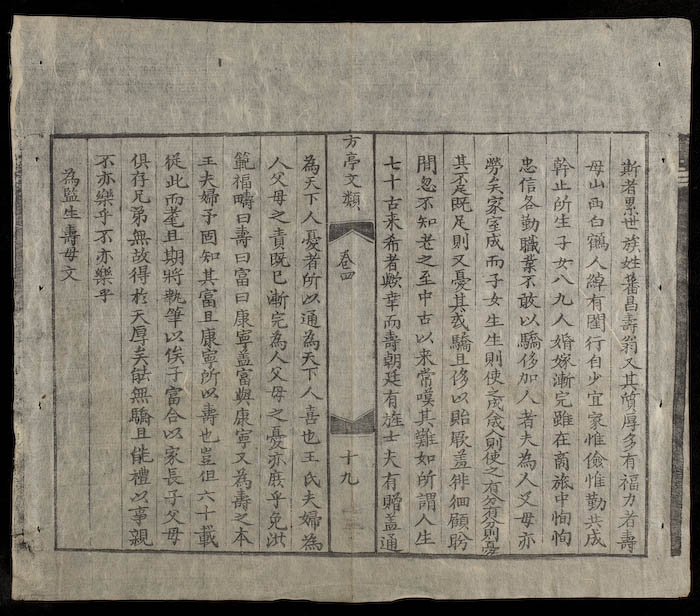 斯者累世族姓蕃昌壽翁又其質厚多有福力者壽
母山西白鶴人綽有閨行自少宜家惟儉惟勤共成
幹止所生子女八九人婚嫁漸完雖在商旅中恂恂
忠信各勤職業不敢以驕侈加人者夫為人父母亦
勞矣家室成而子女生生則使之成成人則使之有分有分則憂
其不足既足則又憂其或驕且侈以貽厥羞徘徊顧盼
間忽不知老之至中古以來常嘆其難如所謂人生
七十古來希者歟幸而壽朝廷有旌士夫有贈盖通
方亭文類 卷四 十九
為天下人憂者所以通為天下人喜也王氏夫婦為
人父母之責既已漸完為人父母之憂亦庶乎免洪
範福疇曰壽曰富曰康寧盖富與康寧又為壽之本
王夫婦予固知其富且康寧所以壽也豈但六十載
從此而耄且期將執筆以俟子富合以家長子父母
俱存兄弟無故得於天厚矣能無驕且能禮以事親
不亦樂乎不亦樂乎
為監生壽母文